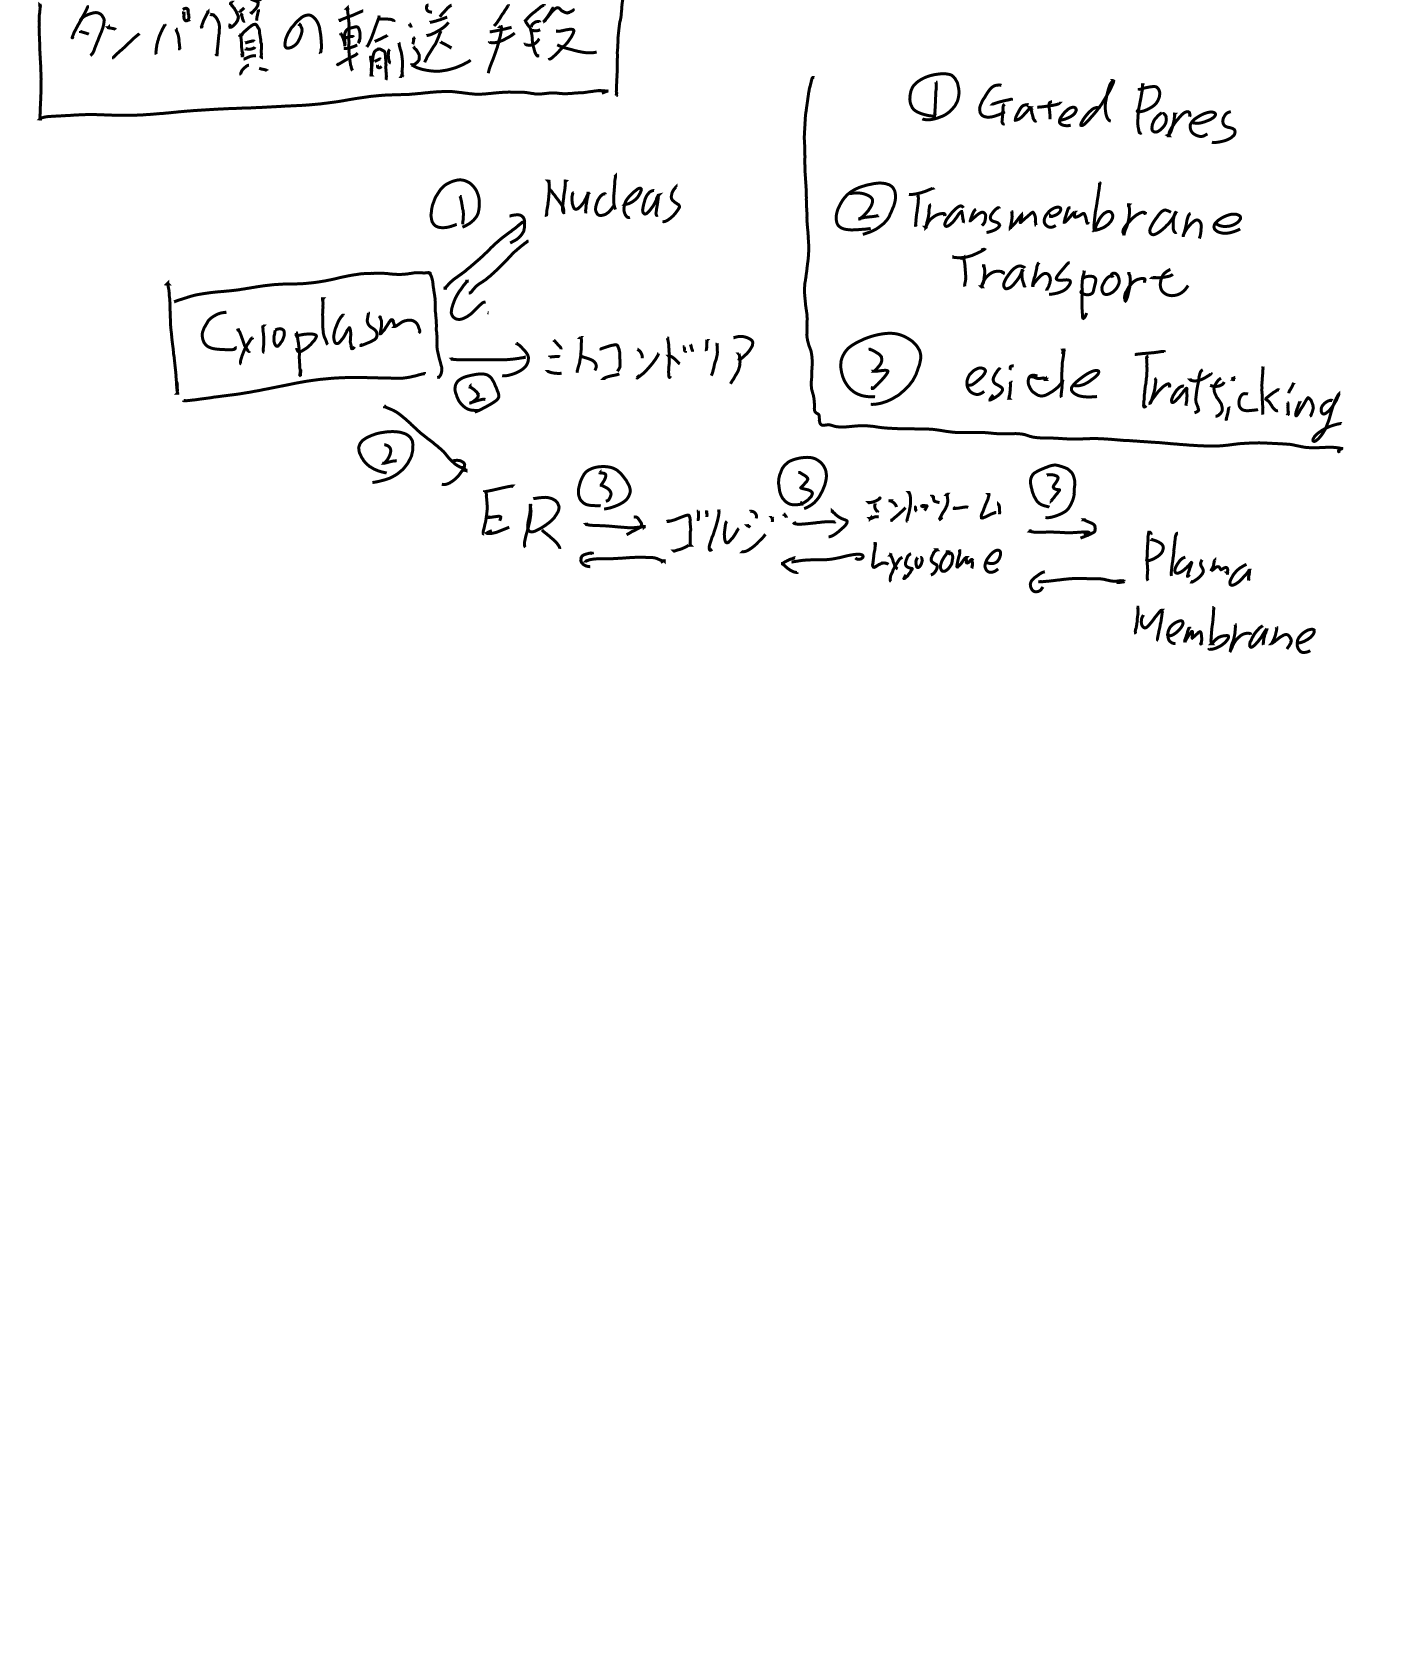 タンパク質の輸送手段
① Gated Pores
② Transmembrane
Transport
③ esicle Trafficking
① Nucleas
Cytoplasm
② ミトコンドリア
②
ER ③ ゴルジ ③ エンドソーム ③
Lysosome
Plasma
Membrane